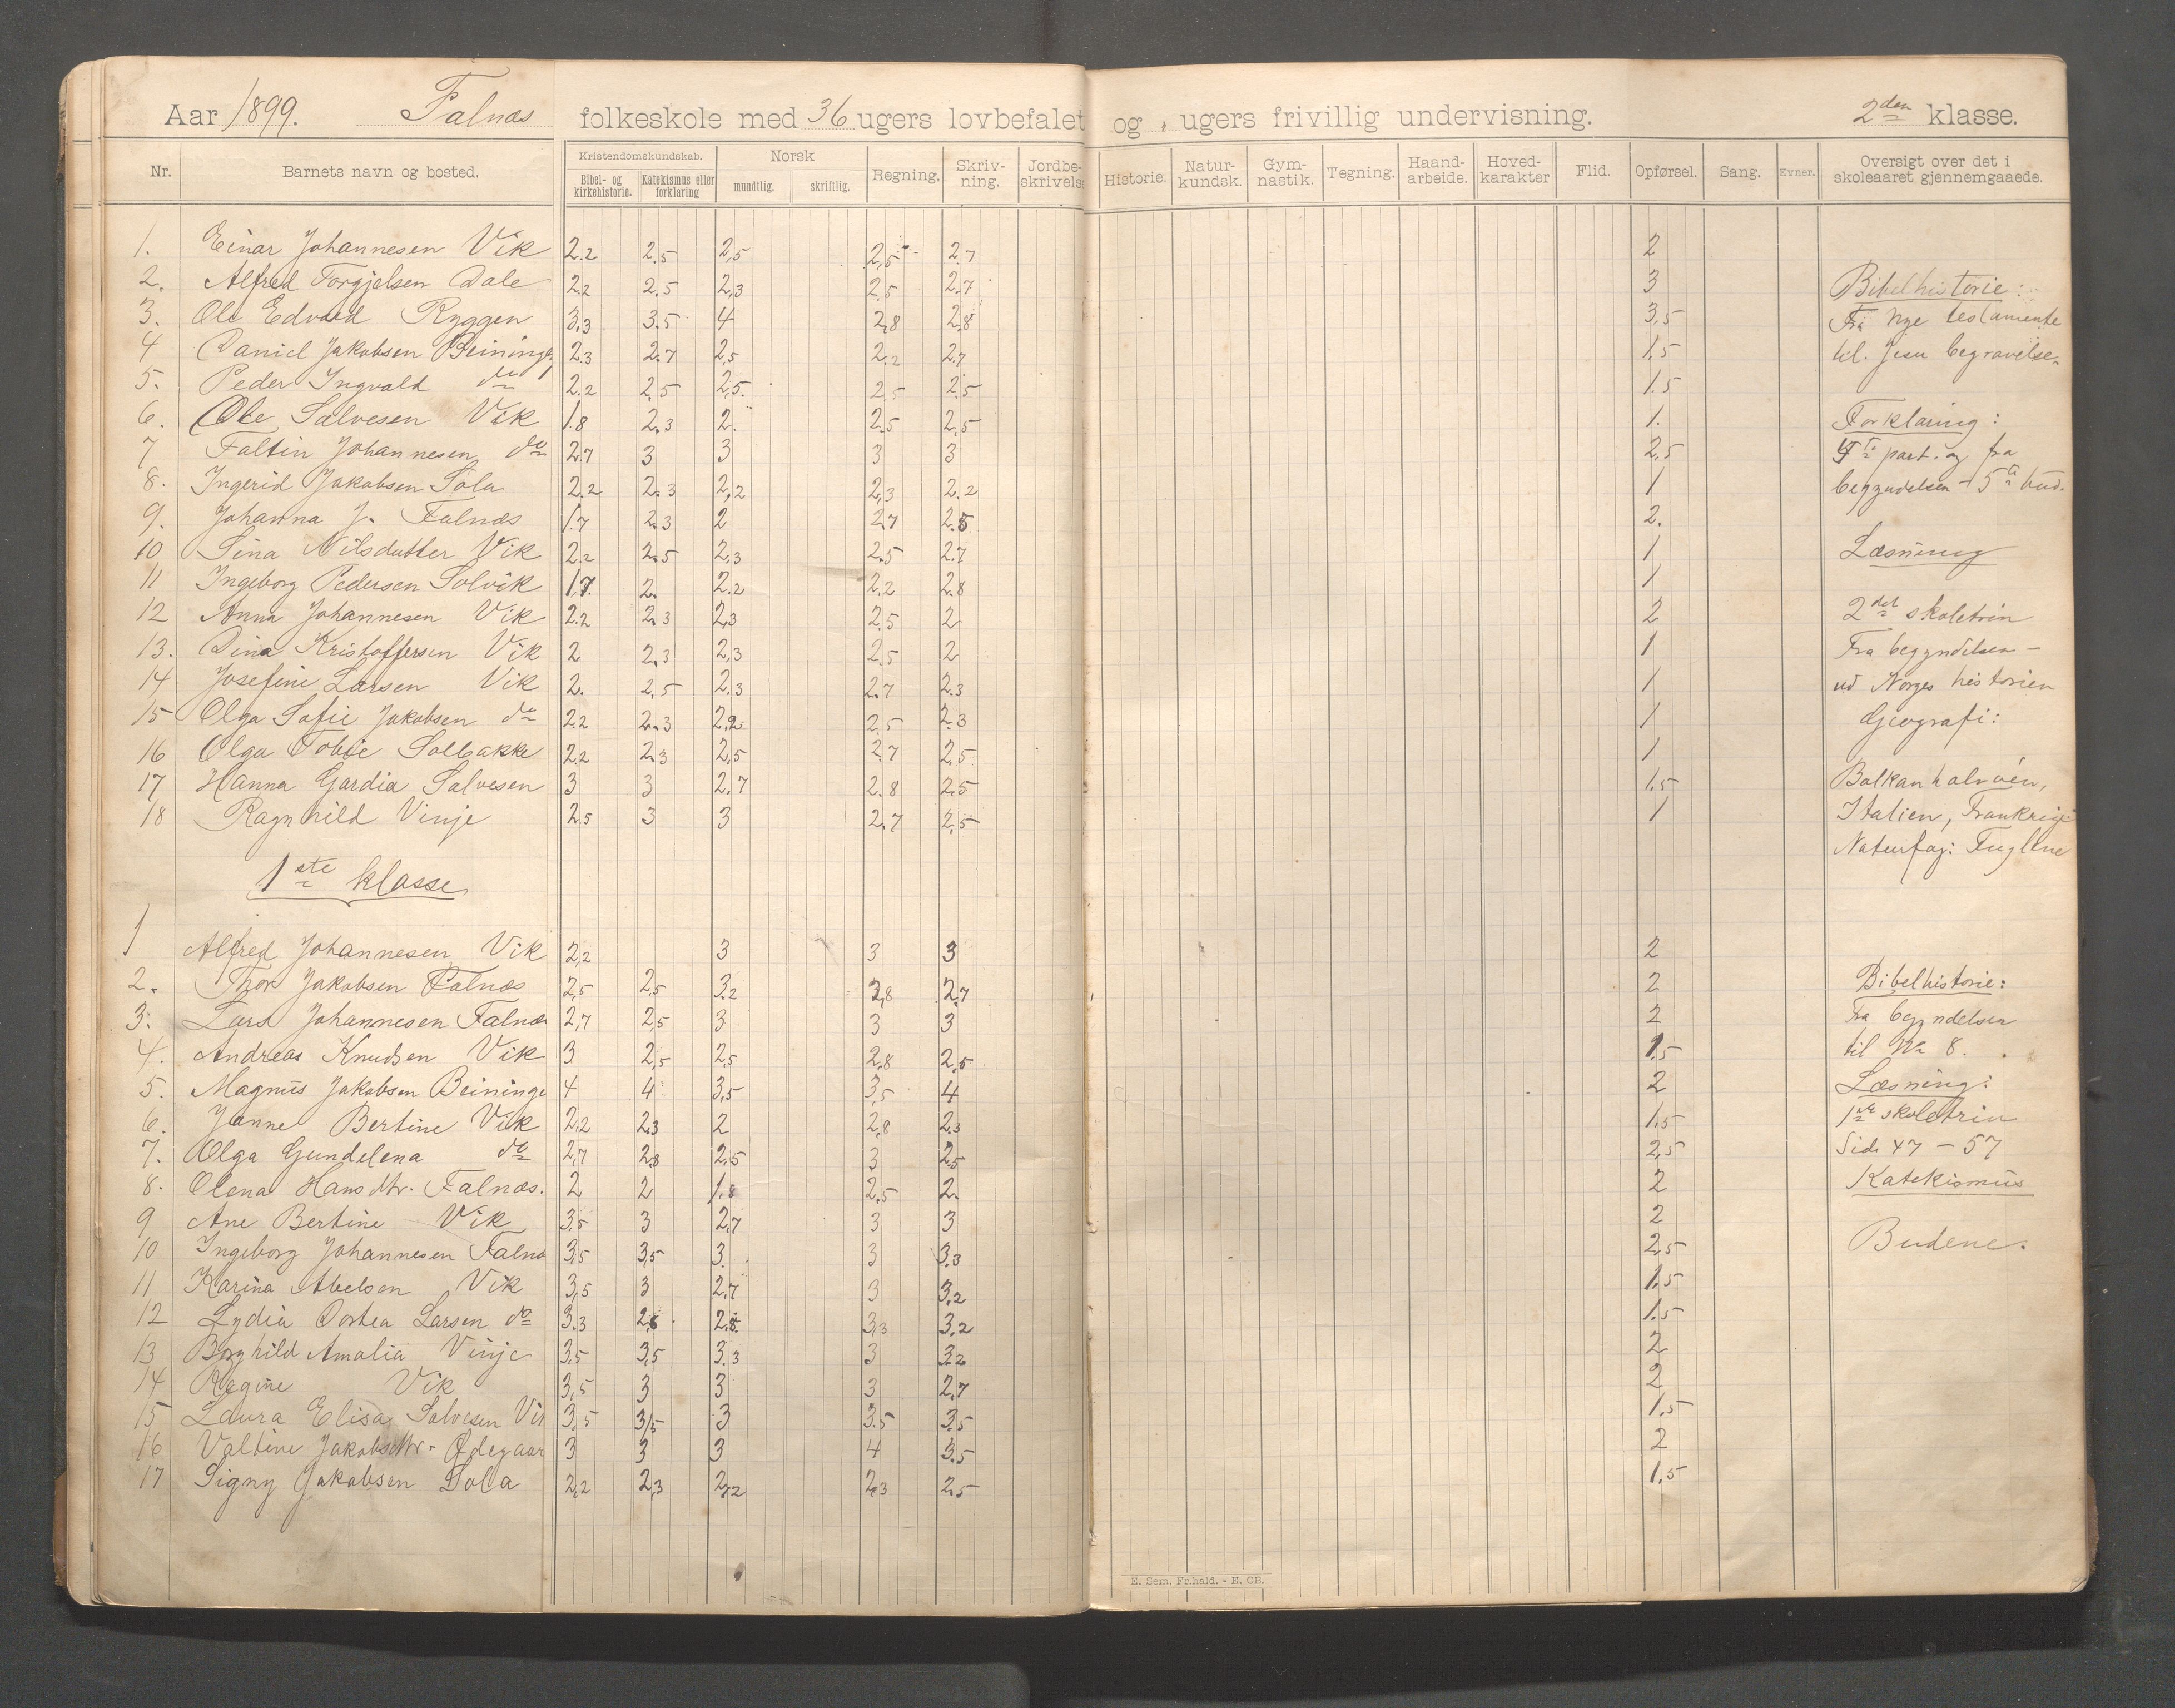 Aar 1899. Falnæs folkeskole med 36 ugers lovbefalet og , ugers frivillig undervisning. 2den klasse.
Nr. Barnets navn og bosted. Kristendomskundskab. Bibel- og kirkehistorie. Katekismus eller forklaring Norsk mundtlig. skriftlig. Regning. Skriv-ning. Jordbe-skrivelse Historie. Natur-kundsk. Gym-nastik. Tegning. Haand-arbeide. Hoved-karakter Flid. Opførsel. Sang. Evner. Oversigt over det i skoleaaret gjennemgaaede.
1. Einar Johannesen Vik 2.2 2.5 2,5 2,5 2.7 2
2. Alfred Torgjelsen Dale 2.2 2,5 2,3 2,5 2.7 3 Bibelhistorie:
3. Ole Edvard Ryggen 3,3 3.5 4 2,8 2,8 3,5 Fra nye testamente
4 Daniel Jakobsen Beininge 2,3 2.7 2,5 2,2 2.7 1,5 til Jesu begravelse.
5. Peder Ingvald do 2.2 2,5 2,5. 2,5 2,5 1.5
6. Ole Salvesen Vik 1.8 2.3 2. 2.5 2,5 1. Forklaring:
7 Faltin Johannesen do 2.7 3 3 3 3 2,5 part. og fra
8. Ingerid Jakobsen Sola 2.2 2.3 2,2 2,3 2.2 1 begyndelsen - 5te bud.
9. Johanna J. Falnæs 1.7 2.3 2 2.7 2.5 2.
10 Sina Nilsdatter Vik 2.2 2.5 2,3 2.5 2.7 1 Læsning
11 Ingeborg Pedersen Solvik 1,7. 2. 2.2 2.2 2.8 1
12 Anna Johannesen Vik 2.2 2.3 2,3 2.5 2 2 2det skoletrin
13. Dina Kristoffersen Vik 2 2.3 2,3 2.5 2 1 Fra begyndelsen -
14 Josefine Larsen Vik 2. 2,5 2.3 2.7 2.3 1 ud Norges historien
15 Olga Sofie Jakobsen do 2.2 2.3 2,2 2.5 2.3 1 Geografi:
16 Olga Tobie Solbakke 2.2 2.3 2,5 2.7 2,5 1
17 Hanna Gardia Salvesen 3 3 2.7 2.8 2.5 1,5 Balkanhalvøen,
18 Ragnhild Vinje 2.5 3 3 2.7 2,5 1 Italien, Frankrige
Naturfag: Fuglene
1ste klasse
1 Alfred Johannesen Vik 2,2 3 3 3 2
2. Thor Jakobsen Falnæs 2,5 2,5 3.2 2,8 2.7 2 Bibelhistorie:
3. Lars Johannesen Falnæs 2,7 2,5 3 3 3 2 Fra begyndelsen
4. Andreas Knudsen Vik 3 2,5 2,5 2,8 2,5 1.5 til No 8.
5. Magnus Jakobsen Beininge 4 4 3,5 3,5 4 2 Læsning:
6. Janne Bertine Vik 2,2 2.3 2 2,8 2.3 1,5 1ste skoletrin
7. Olga Gundelena do 2,7 2,8 2.5 3 2.5 2,5 Side 47 - 57
8. Olena Hansdtr. Falnæs. 2 2 1.8 2,5 2. 2 Katekismus
9 Ane Bertine Vik 3,5 3 2.7 3 3 2
10 Ingeborg Johannesen Falnæ 3,5 3,5 3. 3 3.3 2,5 Budene.
11 Karina Abelsen Vik 3,5 3 2.7 3 3.2 1.5
12 Lydia Dortea Larsen do 3.3 2,8 2.8. 3,3 3,2 1.5
13 Borghild Amalia Vinje 3,5 3,5 3.3 3 3.2 2
14 Regine Vik 3,5 3 3 3 2.7 2
15 Laura Elisa Salvesen Vik 3,5 3,5 3 3.5 3.5 1,5
16 Valtine Jakobsdtr. Ødegaar 3 3 3 4 3.5 2
17 Signy Jakobsen Sola 2,2 2,3 2,2 2,3 2.5 1.5
E. Sem, Fr.hald. - E. CB.